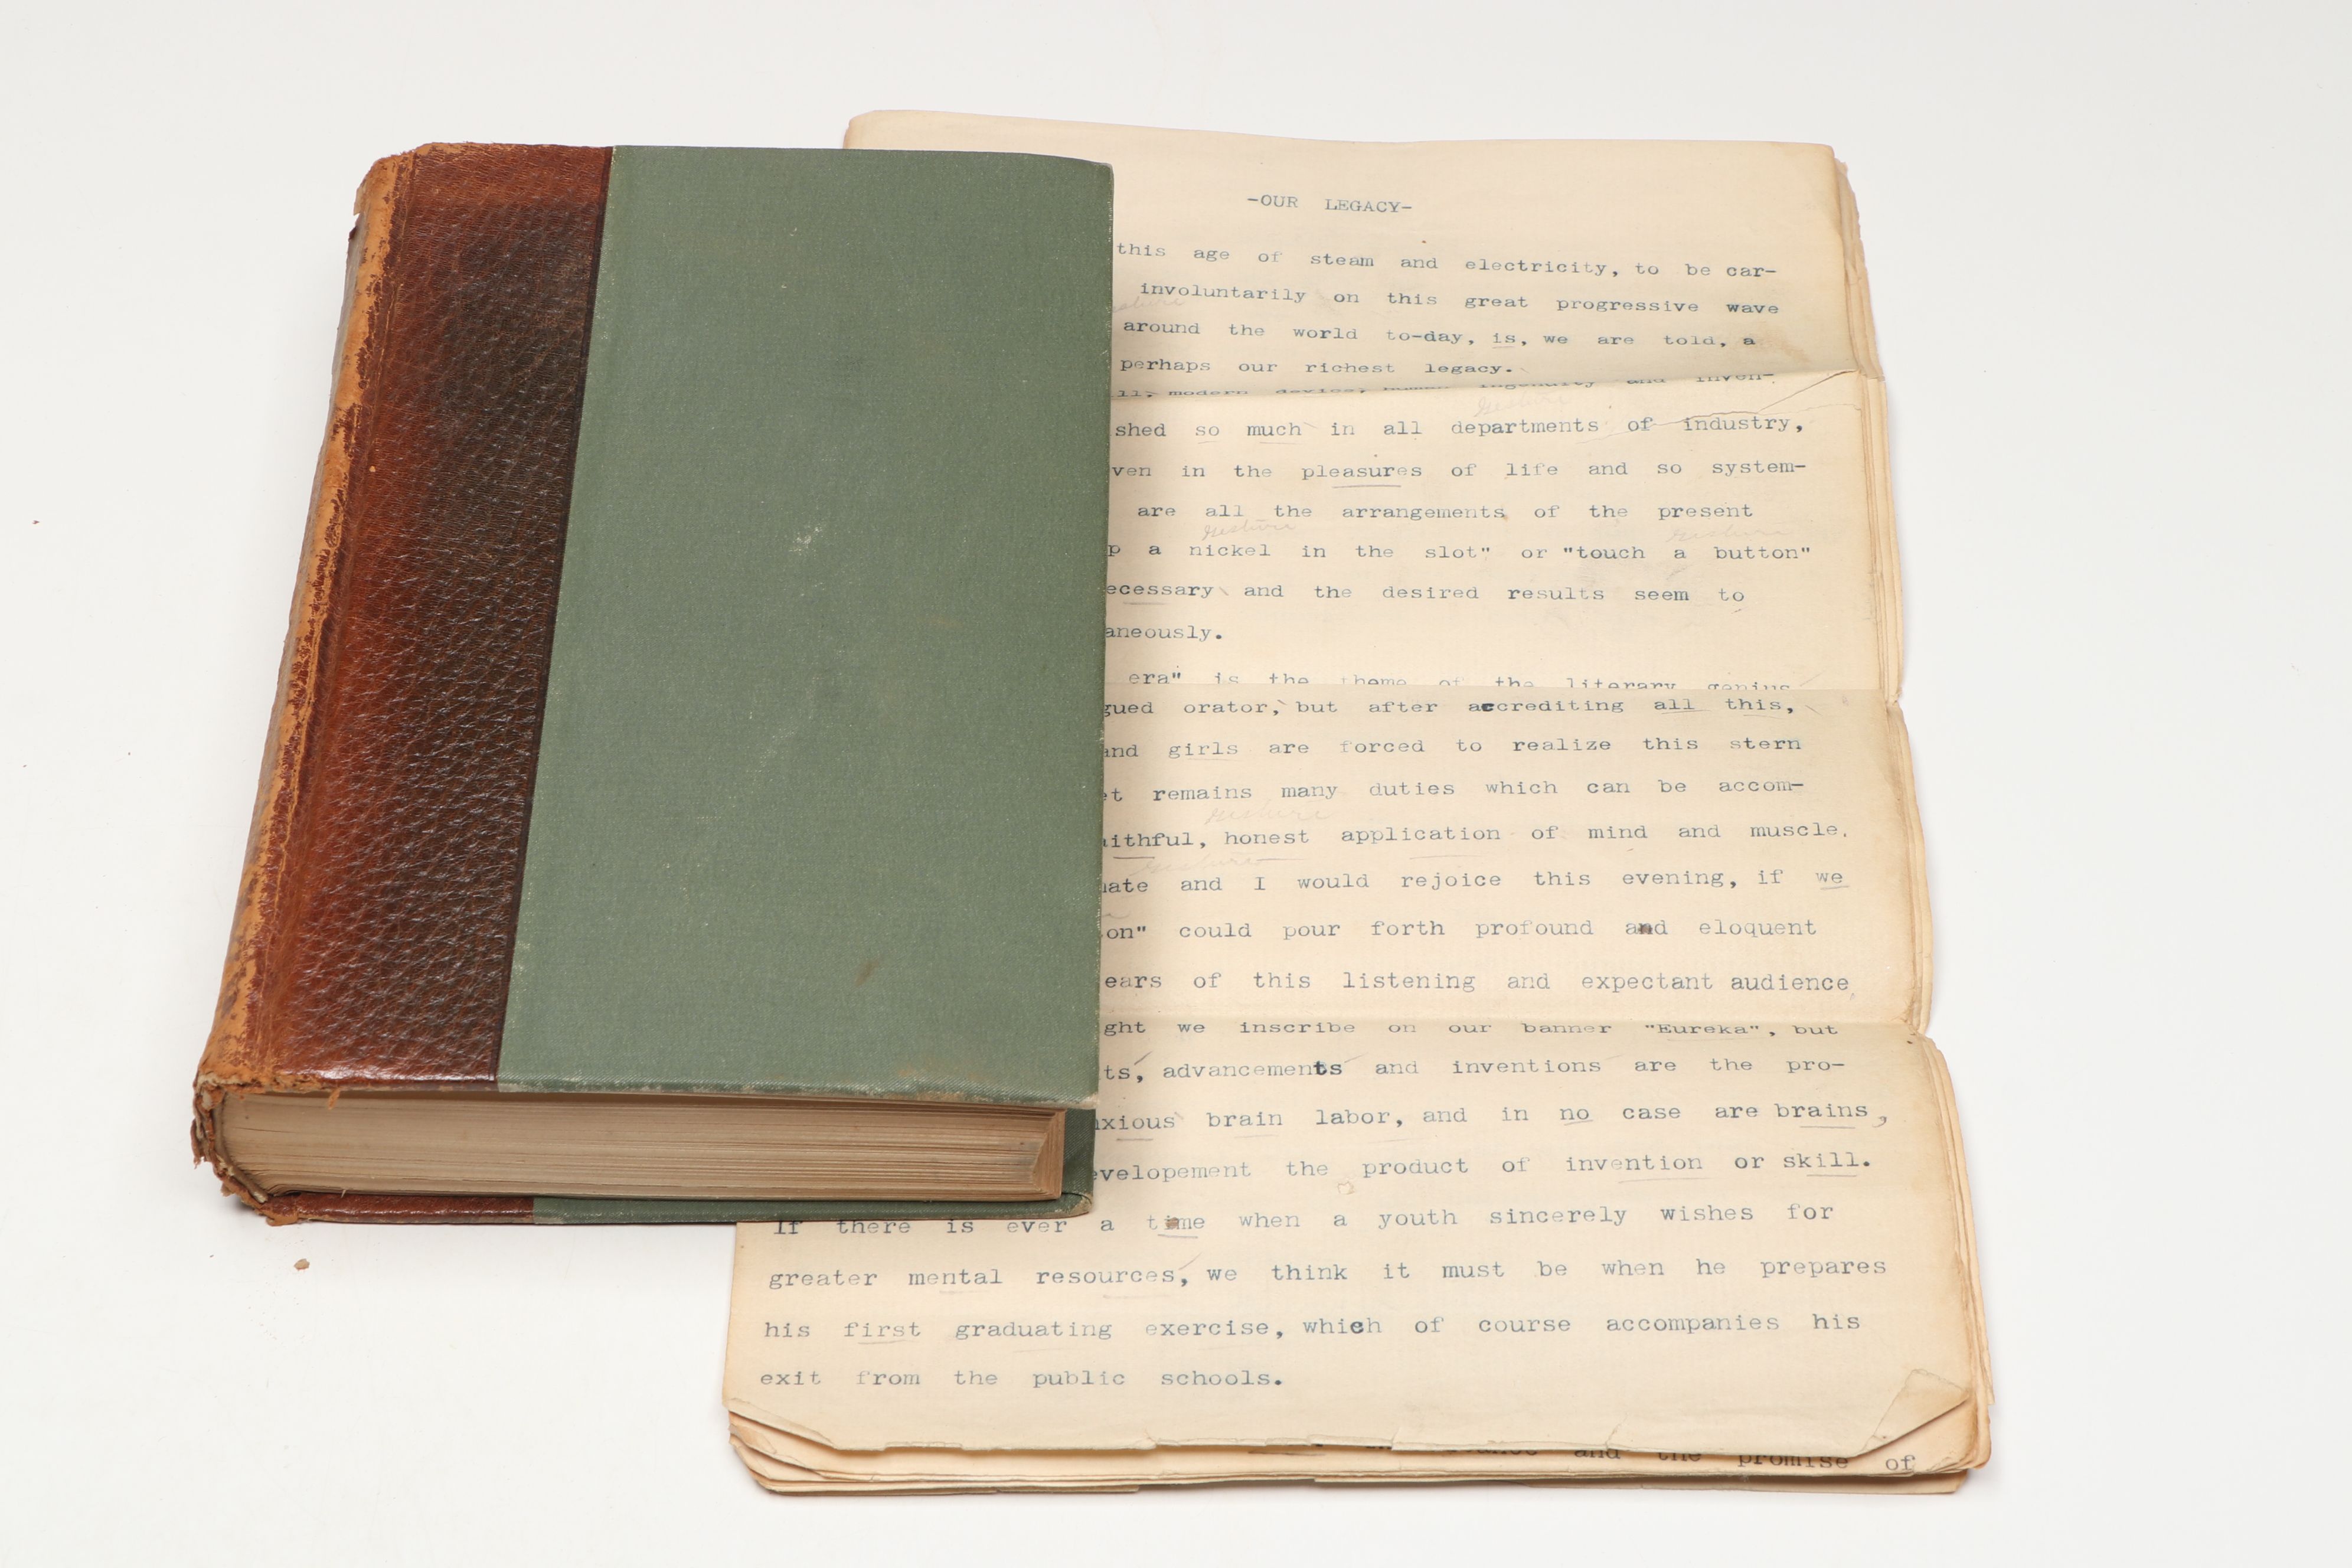 -OUR LEGACY-
this age of steam and electricity, to be car-
Gesture
involuntarily on this great progressive wave
around the world to-day, is, we are told, a
perhaps our richest legacy.
modern device, human ingenuity and inven-
Gesture
shed so much in all departments of industry,
ven in the pleasures of life and so system-
are all the arrangements of the present
Gesture Gesture
p a nickel in the slot" or "touch a button"
ecessary and the desired results seem to
aneously.
era" is the theme of the literary genius
gued orator, but after accrediting all this,
and girls are forced to realize this stern
et remains many duties which can be accom-
Gesture
aithful, honest application of mind and muscle.
Gesture
mate and I would rejoice this evening, if we
on" could pour forth profound and eloquent
ears of this listening and expectant audience,
ght we inscribe on our banner "Eureka", but
ts, advancements and inventions are the pro-
nxious brain labor, and in no case are brains,
evelopement the product of invention or skill.
If there is ever a time when a youth sincerely wishes for
greater mental resources, we think it must be when he prepares
his first graduating exercise, which of course accompanies his
exit from the public schools.
and the promise of